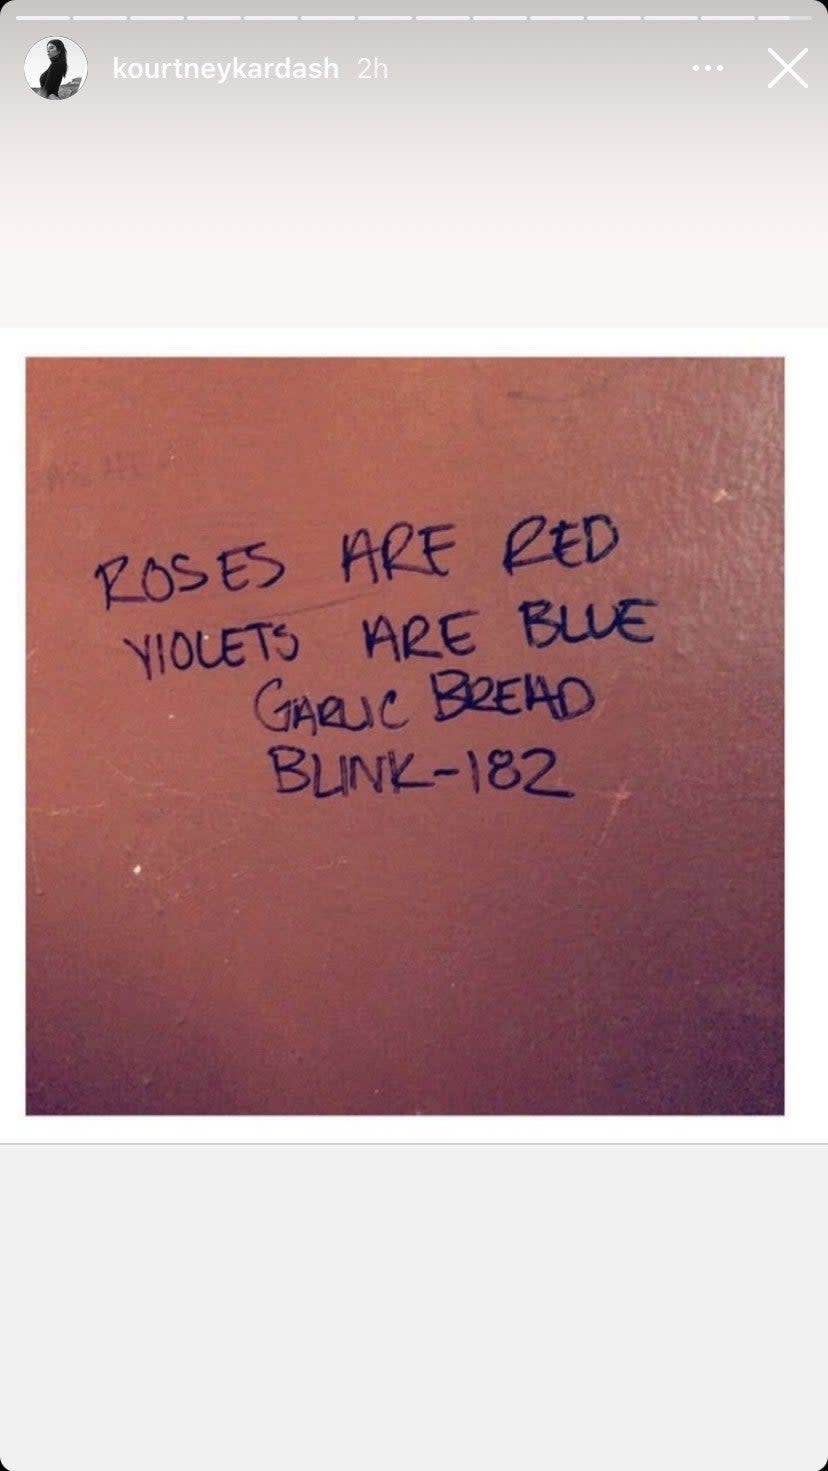 kourtneykardash 2h
ROSES ARE RED
VIOLETS ARE BLUE
GARLIC BREAD
BLINK-182